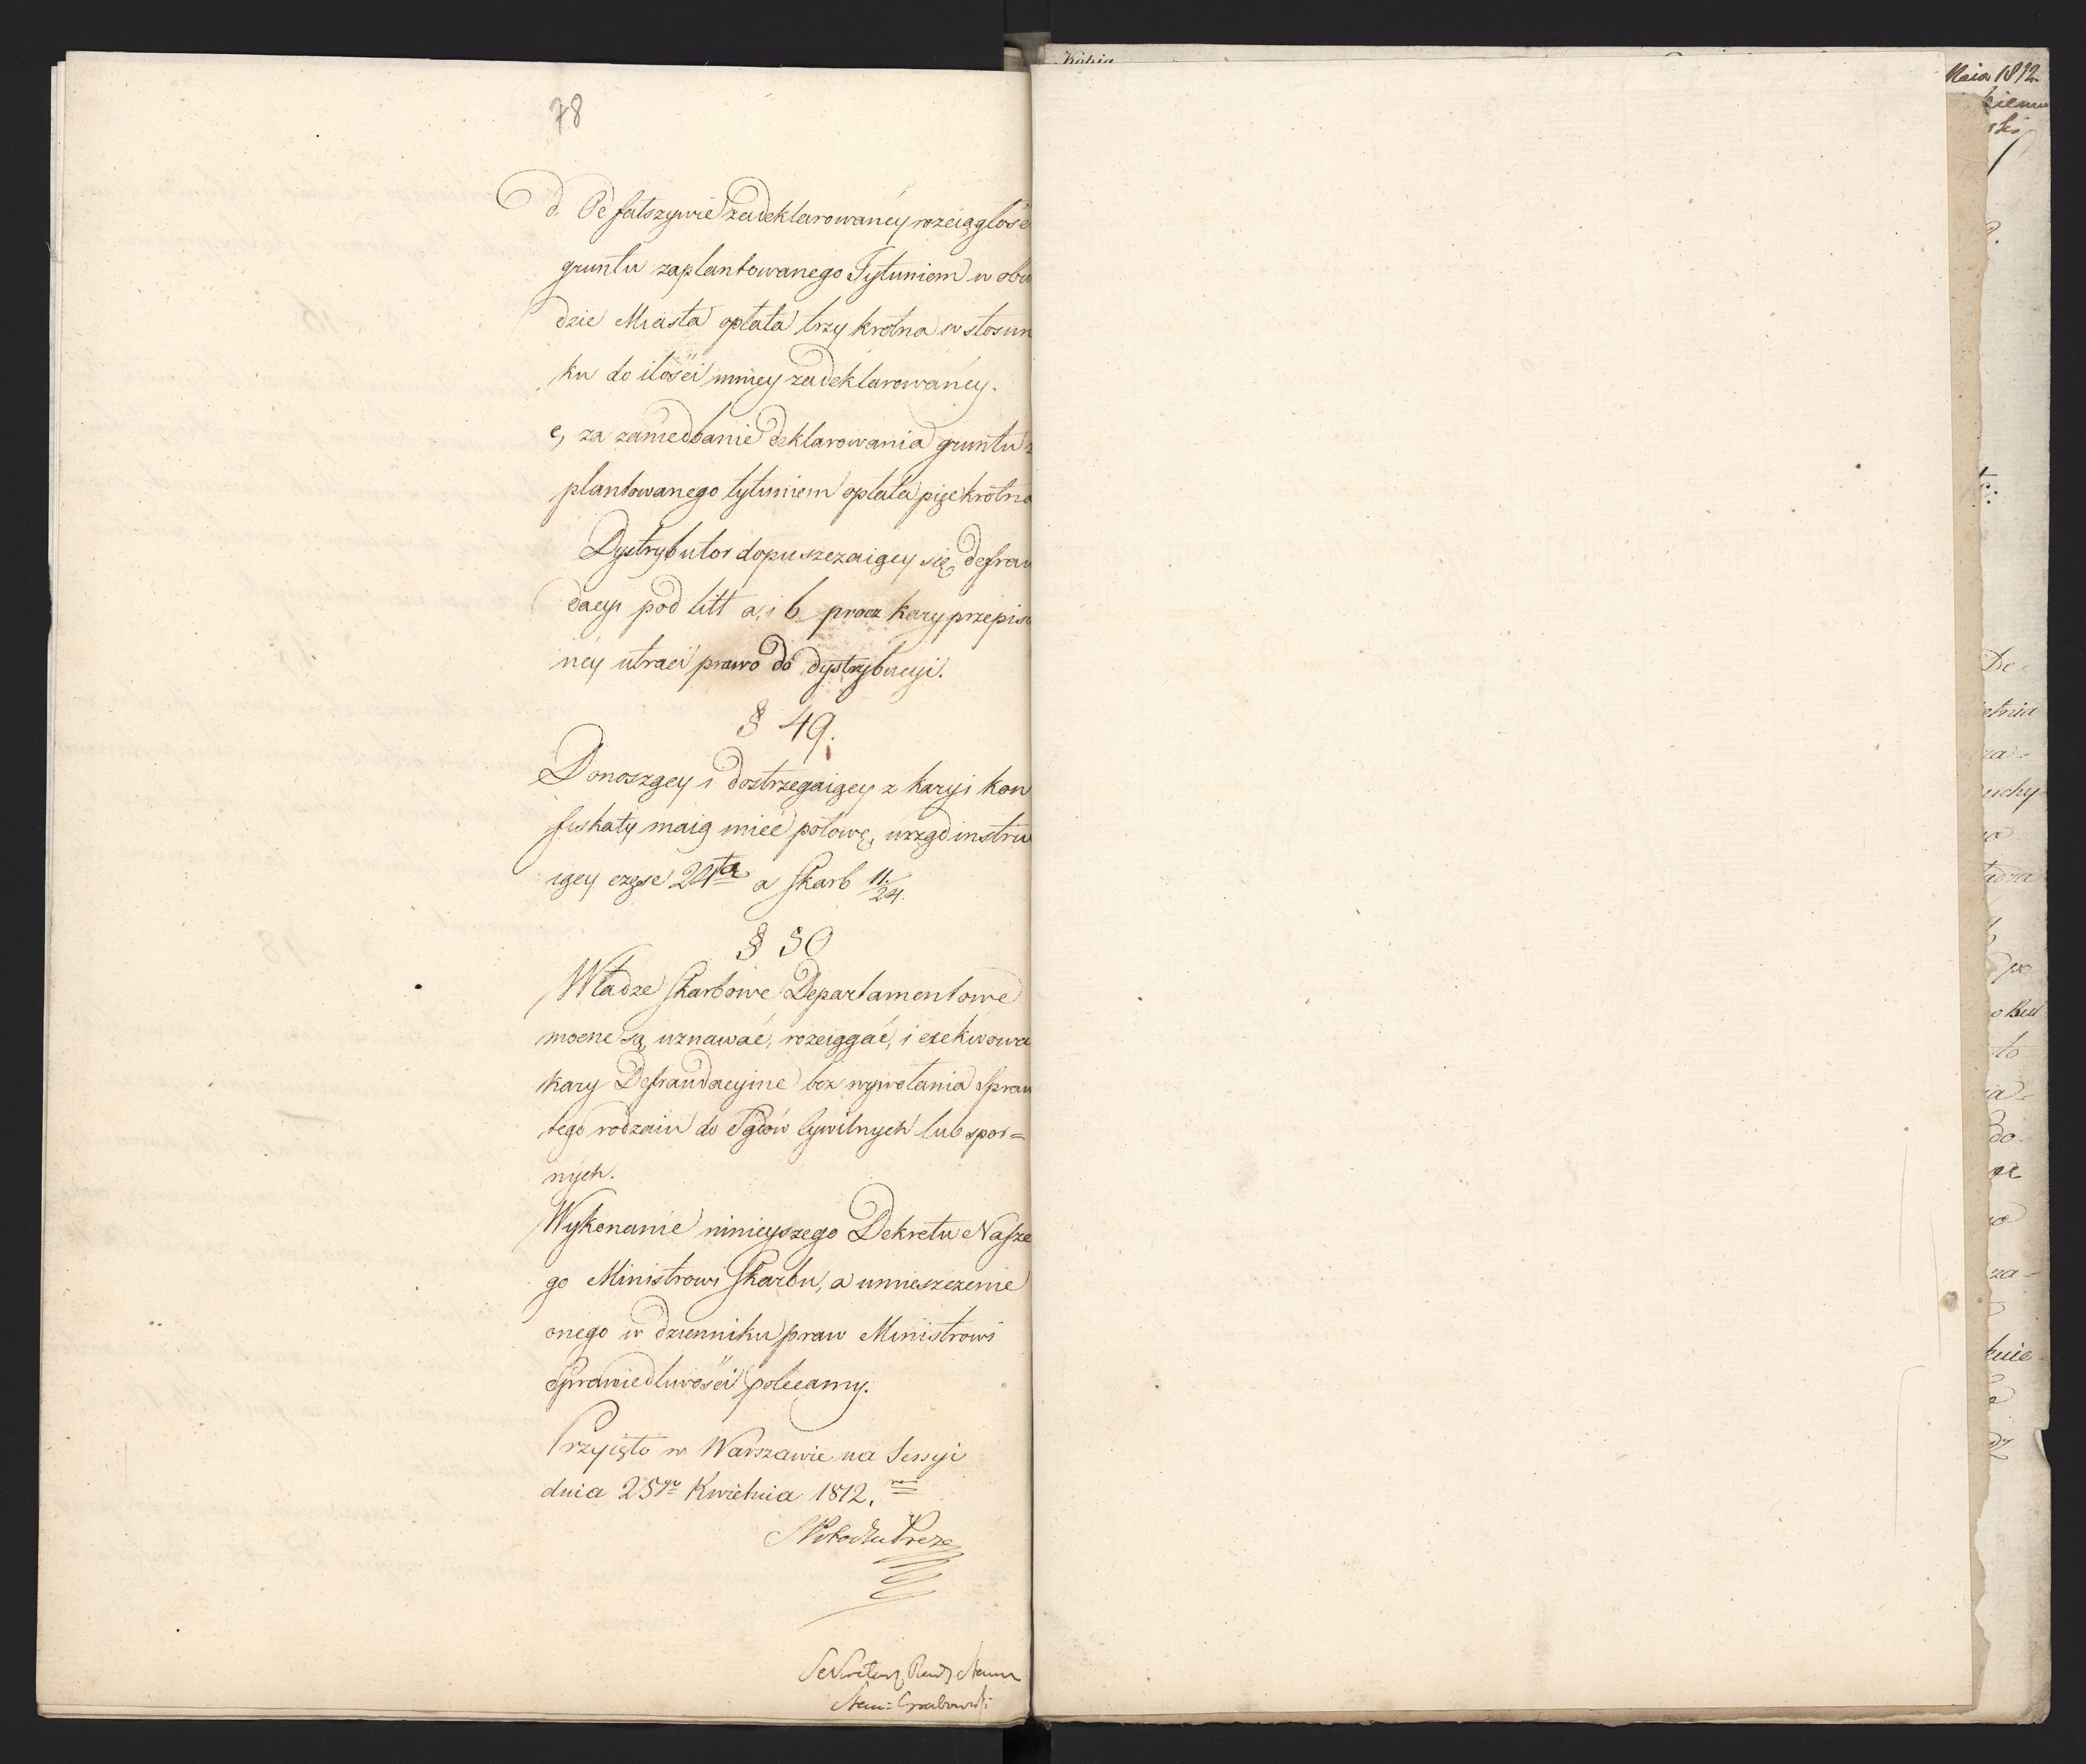 78
d. Od fałszywie zadeklarowanéy rozciągłośc
gruntu zaplantowanego Tytuniem w obw
dzie Miasta opłata trzy krotna w stosun
ku do ilości mniey zadeklarowanéy.
e, za zaniedbanie deklarowania gruntu z
plantowanego tytuniem opłata pięćkrotna
Dystrybutor dopuszczaiący się, defrau
dacyi pod litt a, i b procz kary przepisa
néy utraci prawo do dystrybucyi.
§ 49.
Donoszący i dostrzegaiący z kary i kon
fiskaty maią mieć połowę, urząd instru
iący część 24tą a Skarb 11/24.
§ 50
Władze Skarbowe Departamentowe
mocne są, uznawać, rozciągać, i exekwowa
kary Defraudacyine bez wywołania Spraw
tego rodzaiu do Sądów Cywilnych lub spor=
nych.
Wykonanie ninieyszego Dekretu Nasze
go Ministrowi Skarbu, a umieszczenie
onego w dzienniku praw Ministrowi
Sprawiedliwości polecamy.
Przyięto w Warszawie na Sessyi
dnia 25go Kwietnia 1812. ro
Sekretarz Rady Stanu
Stan: Grabowski
Kopia
Maia 1812.
kiemu
ski
De-
etnia
za-
uchy-
ładza
po
to
ia-
do-
za-
kuie-